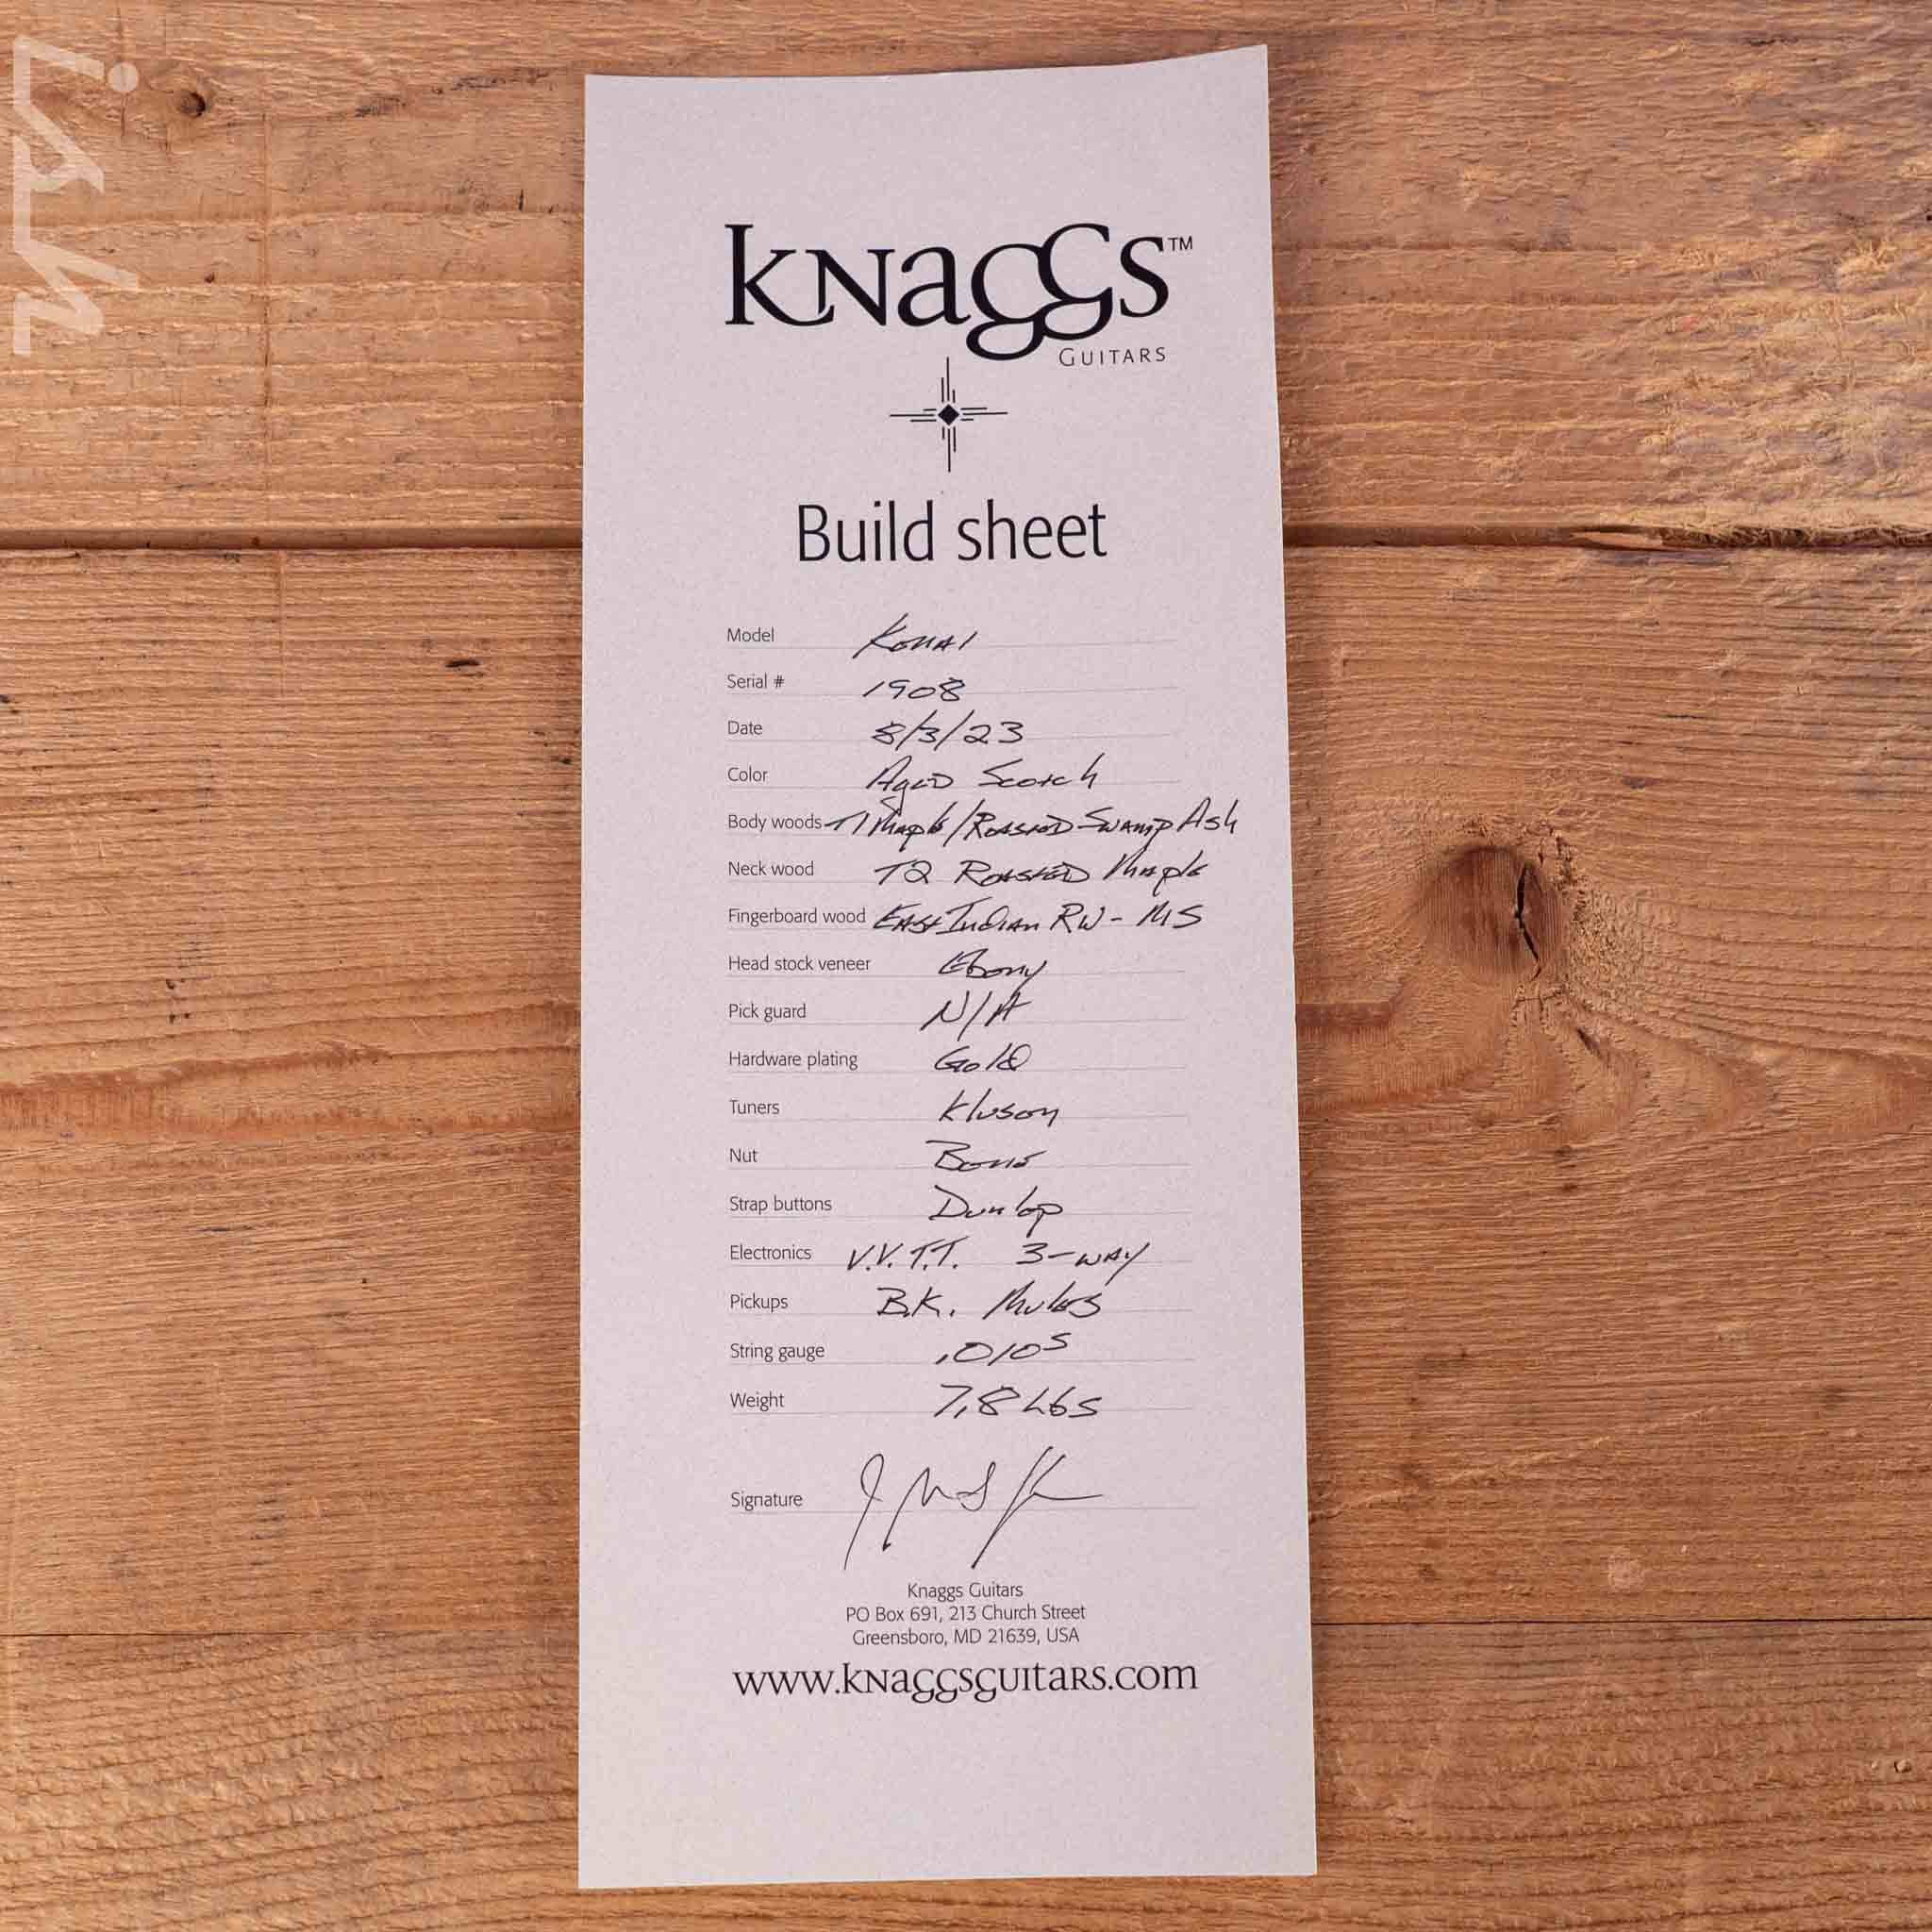 ish
KNaGGS™
GUITARS
Build sheet
Model KENAI
Serial # 1908
Date 8/3/23
Color Aged Scotch
Body woods T1 Maple/Roasted Swamp Ash
Neck wood T2 Roasted Maple
Fingerboard wood East Indian RW - MS
Head stock veneer Ebony
Pick guard N/A
Hardware plating Gold
Tuners Kluson
Nut Bone
Strap buttons Dunlop
Electronics V.V.T.T. 3-way
Pickups B.K. Mules
String gauge .010s
Weight 7.8 Lbs
Signature
Knaggs Guitars
PO Box 691, 213 Church Street
Greensboro, MD 21639, USA
www.knaggsguitars.com